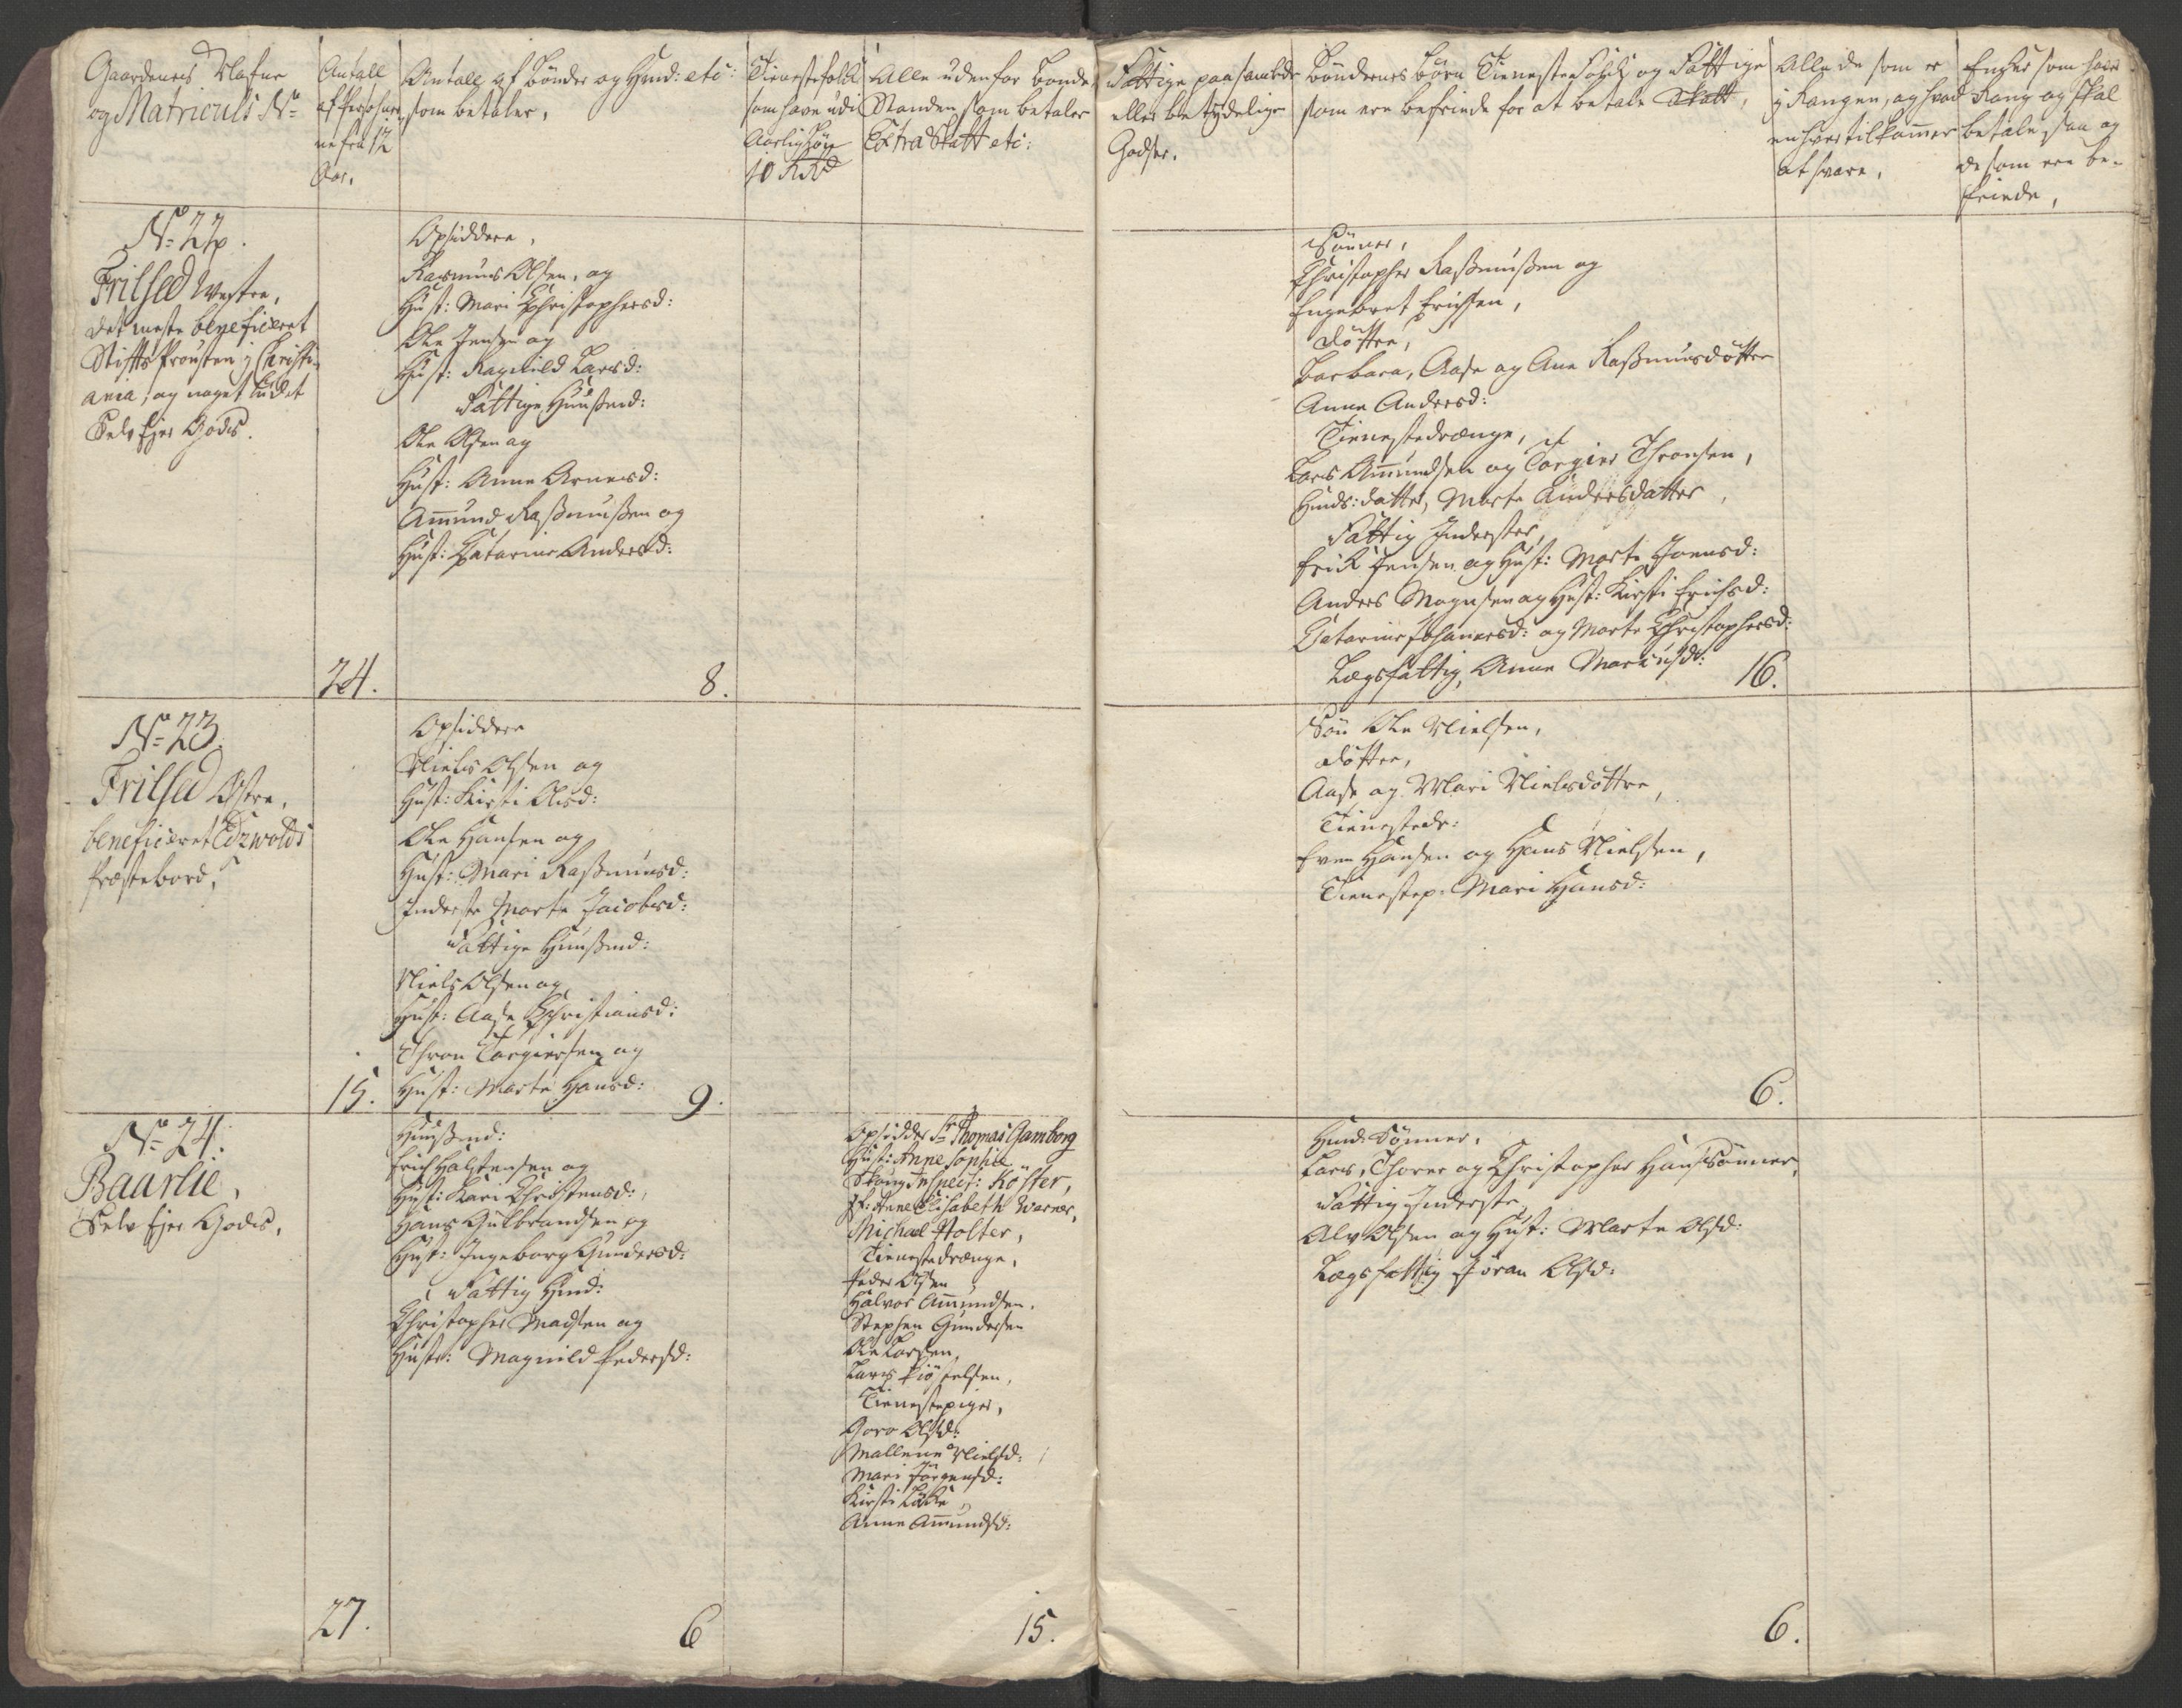 Gaardenes Nafne
og Matriculs No
Antall
af Personer
ne fra 12
Aar.
Antall af Bønder og Huusmd: etc:
som betaler,
Tienestefolk
som have udi
Aarlig Løn
10 Rd
Alle udenfor Bonde
Standen som betaler
Extra Skatt etc:
Fattige paa samtlige
eller betydelige
Godser.
Bøndernes Børn Tienestefolk og Fattige
som ere befriede for at betale Skatt,
Alle de som er
i Rangen, og hvad
enhver tilkommer
at svare,
Enker som have
Rang og skal
betale, saa og
de som ere be-
friede,
No 22.
Frilsed Westre,
det meste beneficeret
Stifts Provsten i Christi-
ania, og noget lidet
Selv Ejer Gods.
24.
Opsiddere,
Rasmus Olsen, og
Hust: Mari Christophersd:
Ole Jensen og
Hust: Ragnild Larsd:
Fattige Huusmd:
Ole Olsen og
Hust: Anne Arnesd:
Amund Rasmussen og
Hust: Catarine Andersd:
8.
Sønner,
Christopher Rasmussen og
Engebret Erichsen,
Døttre,
Barbara, Aase og Ane Rasmusdøttre
Anne Andersd:
Tienestedrenge,
Lars Amundsen og Torgier Thronsen,
Huusm: datter, Marte Andersdatter,
Fattig Inderster,
Erik Jensen og Hust: Marte Joensd:
Anders Magnsen og Hust: Kirsti Erichsd:
Catarine Johannesd: og Marte Christophersd:
Lægsfattig, Anne Mariusd:
16.
No 23.
Frilsed Østre,
beneficeret Edzwolds
Præstebord,
15.
Opsiddere
Niels Olsen og
Hust: Kirsti Olsd:
Ole Hansen og
Hust: Mari Rasmusd:
Inderste Marte Jacobsd:
Fattige Huusmd:
Niels Olsen og
Hust: Aase Christiansd:
Thron Torgiersen og
Hust: Marte Hansd:
9.
Søn Ole Nielsen,
Døttre,
Aase og Mari Nielsdøttre,
Tienestedr:
Even Hansen og Hans Nielsen,
Tienestep: Mari Hansd:
6.
No 24.
Baarlie,
Selv Ejer Gods,
27.
Huusmd:
Erich Halstensen og
Hust: Kari Christensd:
Hans Gulbrandsen og
Hust: Ingeborg Gundersd:
Fattig Huusmd:
Christopher Madsen og
Hustr: Magnild Pedersd:
6
Opsidder Sr Thomas Gamborg
Hust: Anne Sophie
Skoug Inspect: Köster,
Jf: Anne Elisabeth Warner,
Michael Holter,
Tienestedrenge,
Peder Olsen
Halvor Amundsen,
Stephen Gundersen
Ole Larsen,
Lars Kiöstelsen,
Tienestepiger,
Goro Olsd:
Mallene Nielsd:
Mari Jörgensd:
Kirsti
Anne Amundsd:
15.
Huusm: Sønner,
Lars, Thorer og Christopher Hanssønner,
Fattig Inderste
Alv Olsen og Hust: Marte Olsd:
Lægsfattig Jöran Olsd:
6.